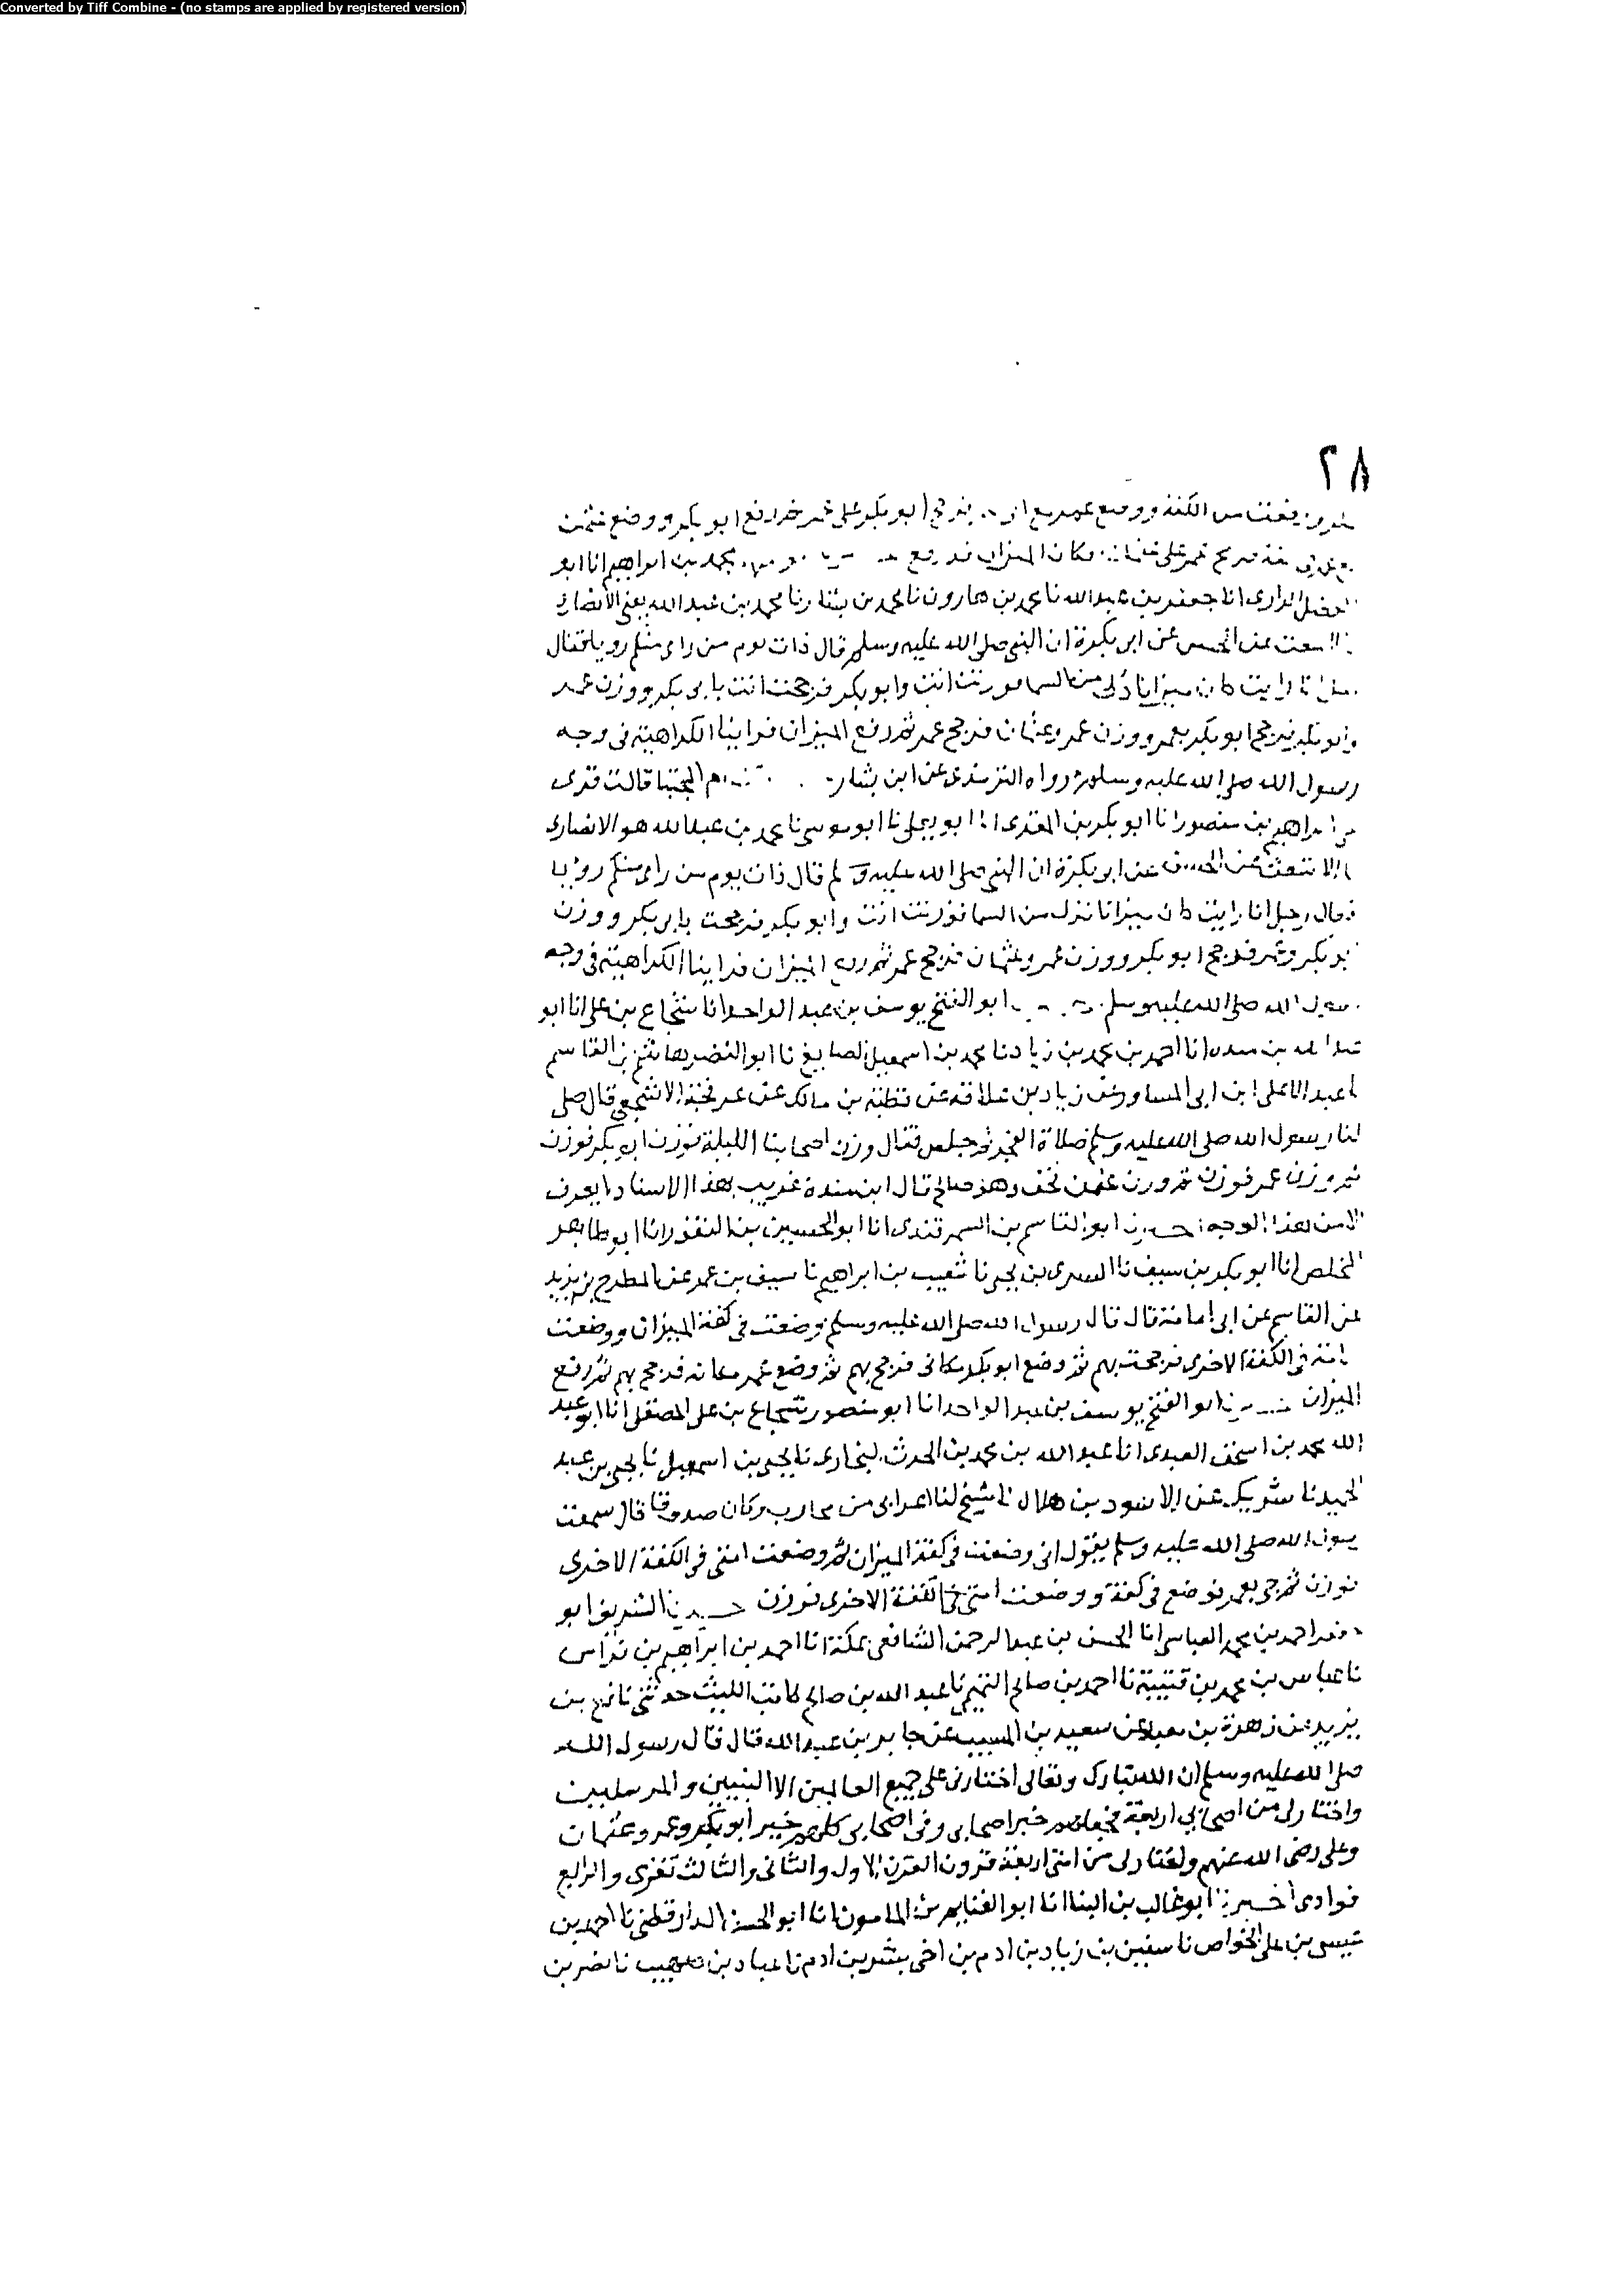 Converted by Tiff Combine - (no stamps are applied by registered version)
٢٨
الكفة ووضع عمر ابو بكر على عمر ثم رفع ابو بكر ووضع عثمن
عمر على فكان الميزان محمد بن ابراهيم انا ابو
الرازى انا جعفر بن عبد الله نا محمد بن هارون نا محمد بن بشار نا محمد بن عبد الله يعنى الأنصارى
عن الحسن عن ابى بكرة ان النبى صلى الله عليه وسلم قال ذات يوم من راى منكم رويا فقال
انا رايت كان ميزانا من السما فوزنت انت وابو بكر فرجحت انت بابى بكر ووزن عمر
وابو بكر فرجح ابو بكر بعمر ووزن عمر وعثمان فرجح عمر ثم رفع الميزان فراينا الكراهية فى وجه
رسول الله صلى الله عليه وسلم رواه الترمذى عن ابن بشار ام المجتبا قالت قرى
ابراهيم بن منصور انا ابو بكر بن المقرى انا ابو يعلى نا ابو موسى نا محمد بن عبد الله هو الانصارى
الاشعث عن الحسن عن ابى بكرة ان النبى صلى الله عليه وسلم قال ذات يوم من راى منكم رؤيا
فقال رجل انا رايت كان ميزانا نزل من السما فوزنت انت وابو بكر فرجحت بابى بكر ووزن
ابو بكر وعمر فرجح ابو بكر ووزن عمر وعثمان فرجح عمر ثم رفع الميزان فراينا الكراهية فى وجه
رسول الله صلى الله عليه وسلم ابو الفتح يوسف بن عبد الواحد انا شجاع بن على انا ابو
عبد الله بن منده انا احمد بن محمد بن زياد نا محمد بن اسمعيل الصايغ نا ابو النضر هاشم بن القاسم
نا عبد الاعلى ابن ابى المساور عن زياد بن علاقة عن قطبة بن مالك عن عرفجة الاشجعى قال صلى
لنا رسول الله صلى الله عليه وسلم صلاة الفجر ثم جلس فقال وزن اصحابنا الليلة فوزن ابو بكر فوزن
ثم وزن عمر فوزن ثم وزن عثمن فخف وهو صالح قال ابن مندة غريب بهذا الاسناد لا يعرف
الا من هذا الوجه ابو القاسم بن السمرقندى انا ابو الحسين بن النقور انا ابو طاهر
المخلص انا ابو بكر بن سيف نا السرى بن يحيى نا شعيب بن ابراهيم نا سيف بن عمر عن المطرح بن يزيد
عن القاسم عن ابى امامة قال قال رسول الله صلى الله عليه وسلم وضعت فى كفة الميزان ووضعت
امتى فى الكفة الاخرى فرجحت بهم ثم وضع ابو بكر مكانى فرجح بهم ثم وضع عمر مكانه فرجح بهم ثم رفع
الميزان ابو الفتح يوسف بن عبد الواحد انا ابو منصور شجاع بن على المصقلى انا ابو عبد
الله محمد بن اسحق العبدى انا عبد الله بن محمد بن الحرث البخارى نا يحيى بن اسمعيل نا يحيى بن عبد
الحميد نا شريك عن الاسود بن هلال نا شيخ لنا اعرابى من محارب وكان صدوقا قال سمعت
رسول الله صلى الله عليه وسلم يقول انى وضعت فى كفة الميزان ثم وضعت امتى فى الكفة الاخرى
فوزن ثم جى بعمر فوضع فى كفة ووضعت امتى فى الكفة الاخرى فوزن الشريف ابو
احمد بن محمد العباسى انا الحسن بن عبد الرحمن الشافعى بمكة انا احمد بن ابراهيم بن فراس
نا عباس بن محمد بن قتيبة نا احمد بن صالح التميمى نا عبد الله بن صالح كاتب الليث حدثنى نافع بن
يزيد عن زهرة بن معبد عن سعيد بن المسيب عن جابر بن عبد الله قال قال رسول الله
صلى الله عليه وسلم ان الله تبارك وتعالى اختارنى على جميع العالمين الا النبيين والمرسلين
واختار لى من اصحابى اربعة فجعلهم خير اصحابى وفى اصحابى كلهم خير ابو بكر وعمر وعثمان
وعلى رضى الله عنهم واختار لى من امتى اربعة قرون القرن الاول والثانى والثالث تترى والرابع
فرادى اخبرنا ابو غالب بن البنا انا ابو الغنايم بن المامون انا ابو الحسن الدارقطنى نا احمد بن
عيسى بن على الخواص نا سفين بن زياد بن ادم بن اخى بشر بن ادم نا عباد بن صهيب نا نضر بن